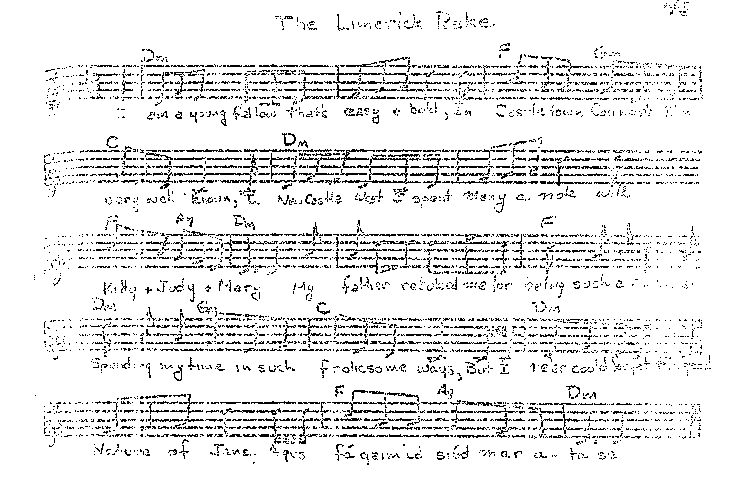 The Limerick Rake
Dm F Gm
I am a young fellow that's easy & bold, In Castletown Conners I'm
C Dm
very well known, In Newcastle West I spent many a note with
F A7 Dm F
Kitty + Judy + Mary My father rebuked me for being such a
Dm Gm C Dm
Spending my time in such frolesome ways, But I ne'er could
F A7 Dm
Nature of Jane, Agus fágaimíd siúd mar a- tá sé